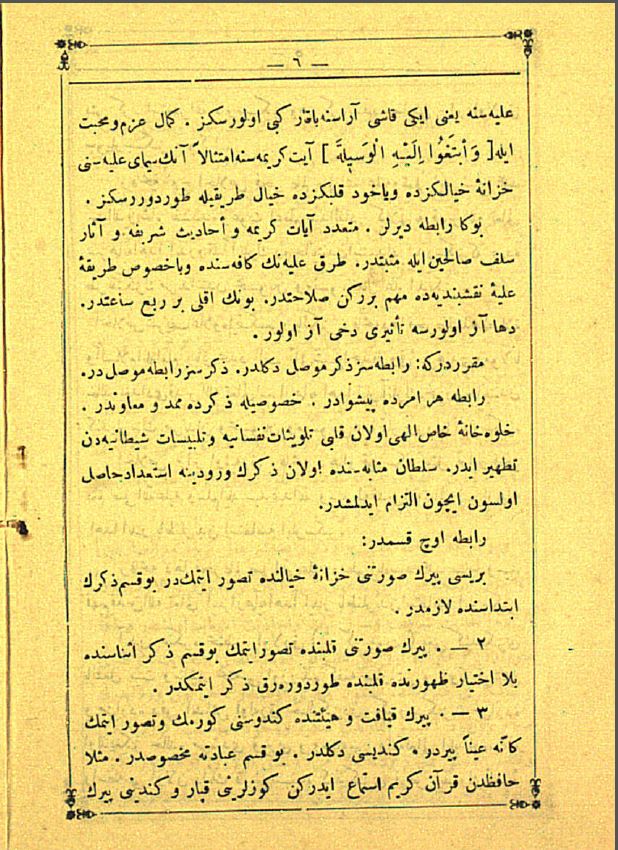 — ٦ —
عليه‌سنه يعنى ايكى قاشى آراسنه باقار كبى اولورسكز . كمال عزم ومحبت
ايله [ وَ ٱبتَغُوا اِلَيْهِ الْوَسيلَةَ ] آيت كريمه‌سنه امتثالاً آنك سيماى عليه‌سنى
خزانهٔ خيالكزده وياخود قلبكزده خيال طريقيله طوردوررسكز .
بوكا رابطه ديرلر . متعدد آيات كريمه و أحاديث شريفه و آثار
سلف صالحين ايله مثبتدر. طرق عليه‌نك كافه‌سنده وباخصوص طريقهٔ
عليهٔ نقشبنديه‌ده مهم برركن صلاحتدر. بونك اقلى بر ربع ساعتدر.
دها آز اولورسه تأثيرى دخى آز اولور .
مقرردركه: رابطه‌سز ذكر موصل دكلدر. ذكرسز رابطه موصل‌در.
رابطه هر امرده پيشوادر . خصوصيله ذكرده ممد و معاوندر .
خلوه‌خانهٔ خاص الهى اولان قلبى تلويثات نفسانيه وتلبيسات شيطانيه‌دن
تطهير ايدر. سلطان مثابه‌سنده اولان ذكرك ورودينه استعداد حاصل
اولسون ايچون التزام ايدلمشدر.
رابطه اوچ قسمدر:
بريسى پيرك صورتنى خزانهٔ خيالنده تصور ايتمك‌در بوقسم ذكرك
ابتداسنده لازمدر .
٢ — . پيرك صورتنى قلبنده تصور ايتمك بوقسم ذكر اثناسنده
بلا اختيار ظهورنده قلبنده طوردوره‌رق ذكر ايتمكدر .
٣ — . پيرك قيافت و هيئتنده كندوسنى كورمك وتصور ايتمك
كأنه عيناً پيردر . كنديسى دكلدر . بوقسم عبادته مخصوصدر . مثلا
حافظدن قرآن كريم استماع ايدركن كوزلرينى قپار و كندينى پيرك